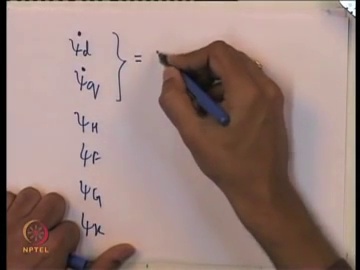 ψ̇d
ψ̇q } =
ψH
ψF
ψG
ψK
NPTEL